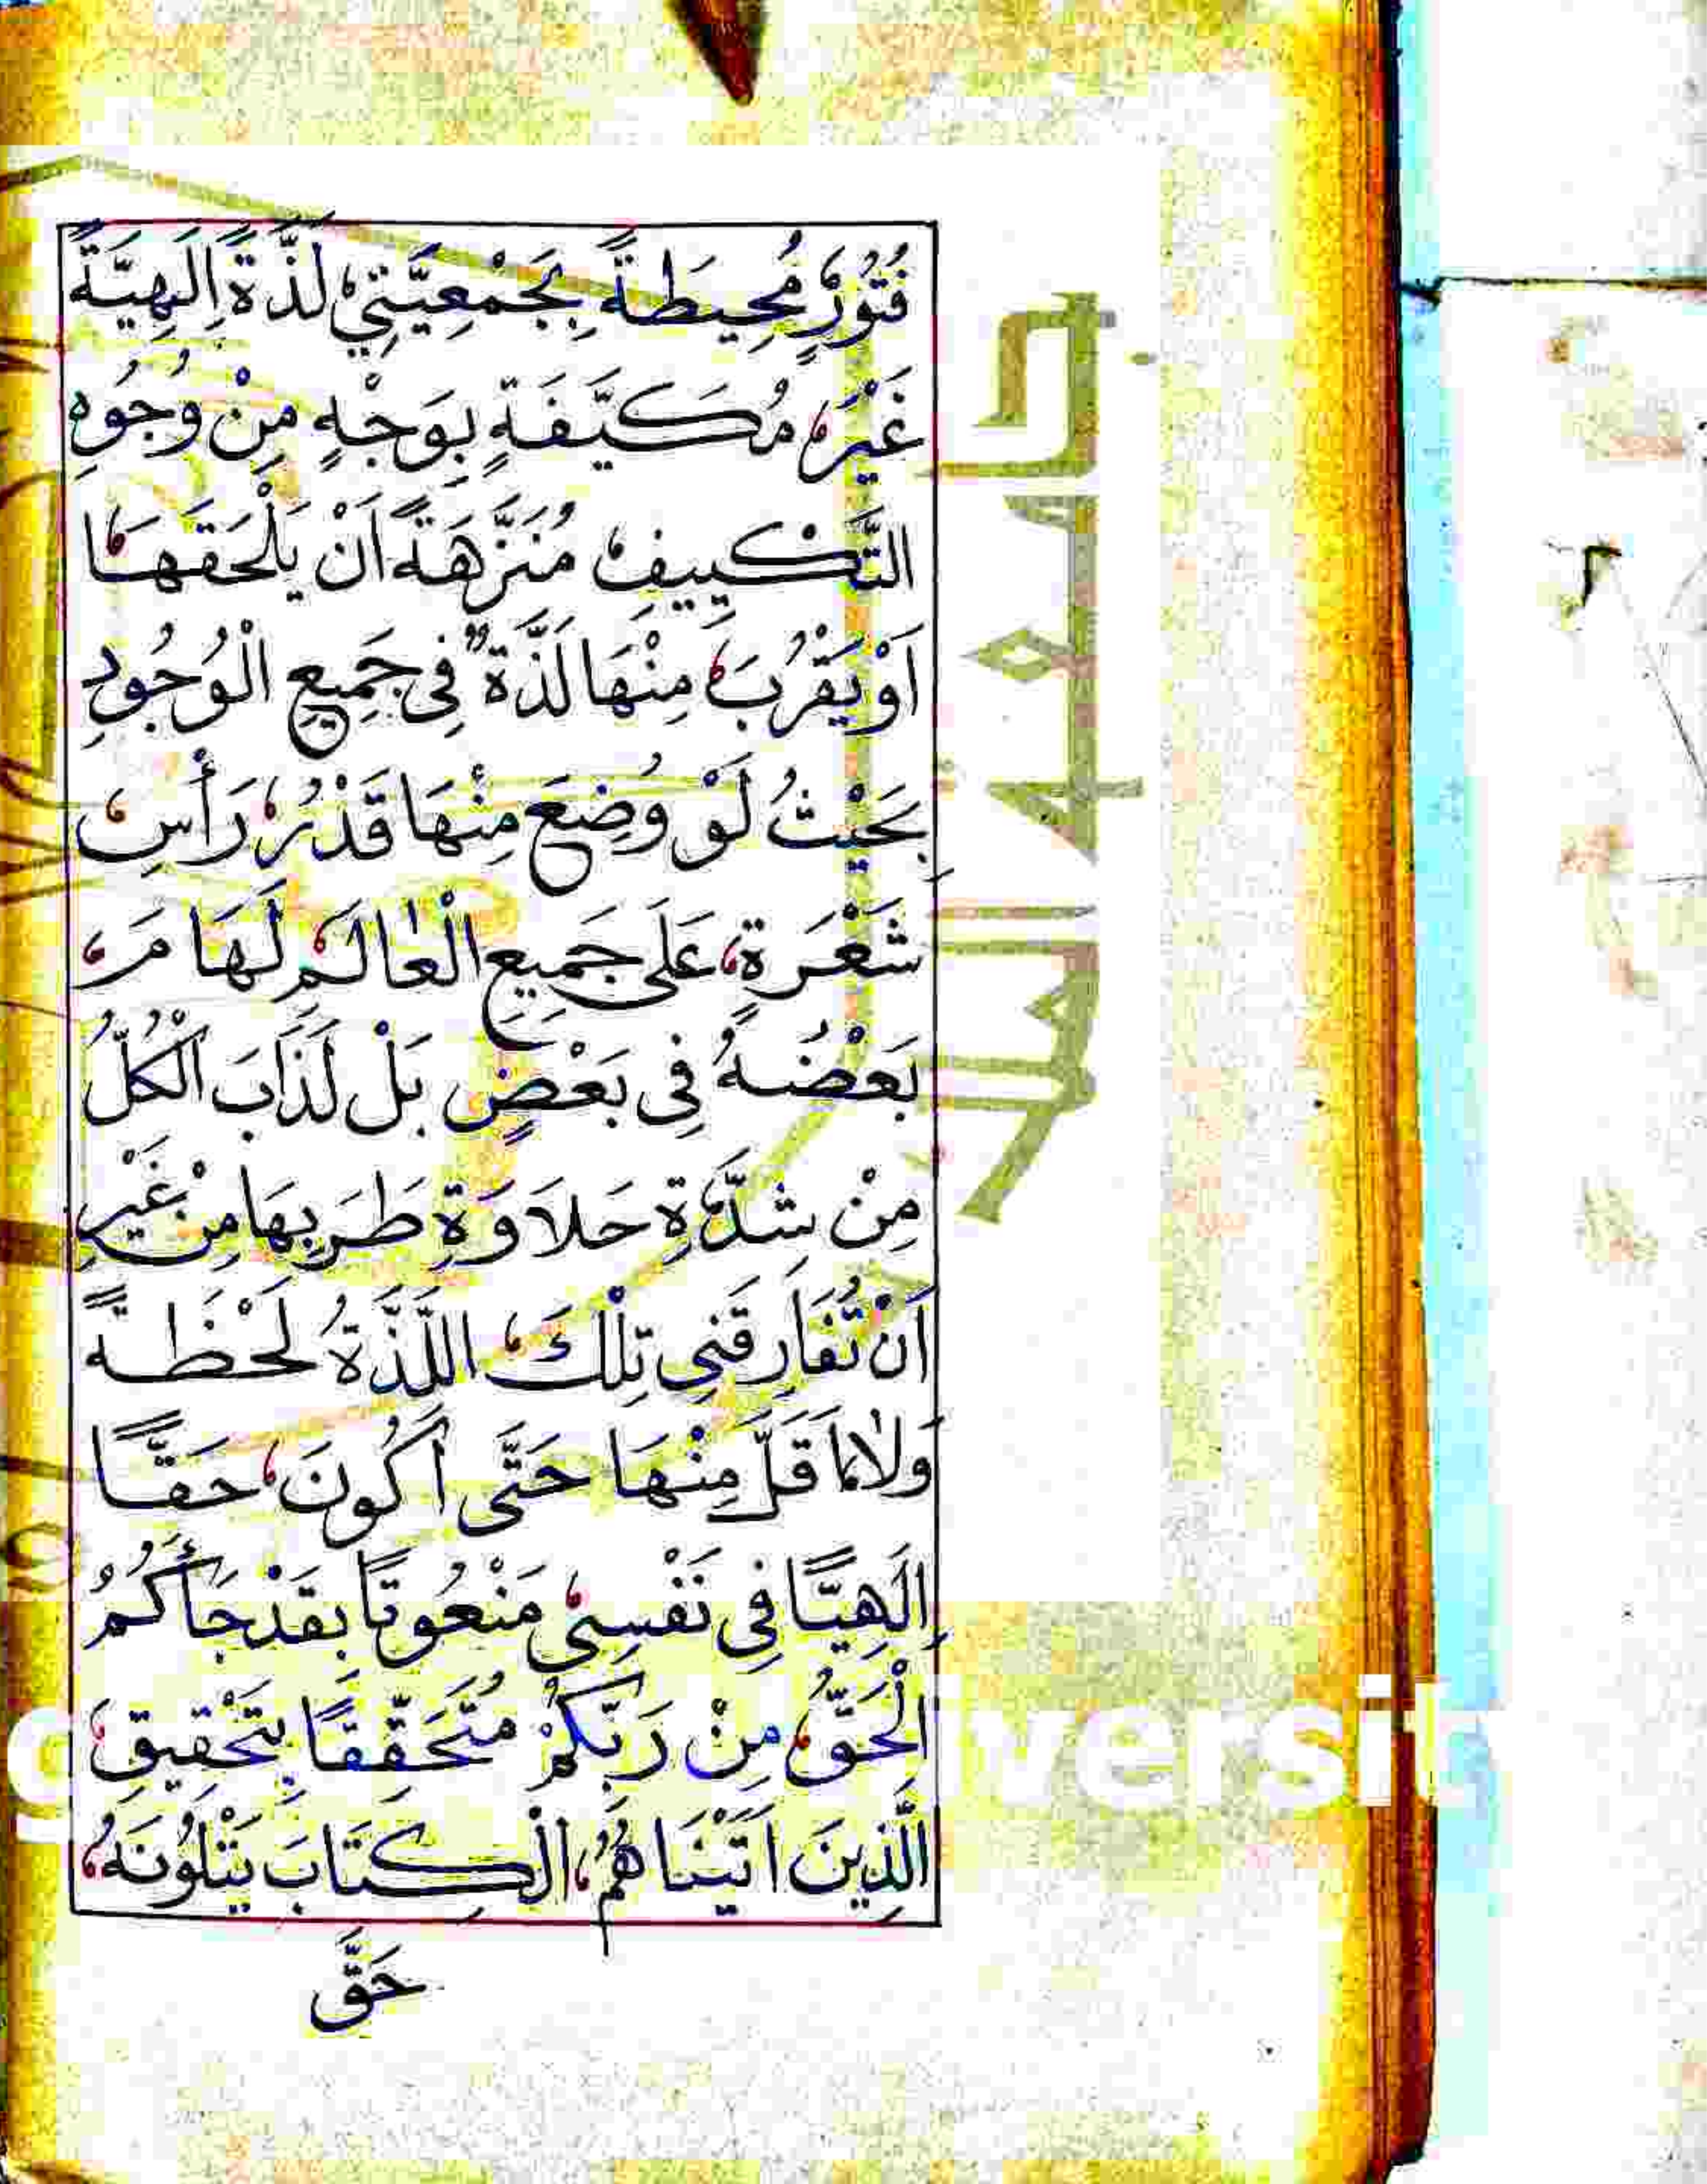 فُتُورٍ مُحِيطَةً بِجَمْعِيَّتِي لَذَّةً اِلَهِيَّةً
غَيْرَ مُكَيَّفَةٍ بِوَجْهٍ مِنْ وُجُوهِ
التَّكْيِيفِ مُنَزَّهَةً اَنْ يَلْحَقَهَا
اَوْ يَقْرُبَ مِنْهَا لَذَّةٌ فِى جَمِيعِ الْوُجُودِ
بِحَيْثُ لَوْ وُضِعَ مِنْهَا قَدْرُ رَأْسِ
شَعْرَةٍ عَلَى جَمِيعِ الْعَالَمِ لَهَامَ
بَعْضُهُ فِى بَعْضٍ بَلْ لَذَابَ الْكُلُّ
مِنْ شِدَّةِ حَلَاوَةِ طَرَبِهَا مِنْ غَيْرِ
اَنْ تُفَارِقَنِى تِلْكَ اللَّذَّةُ لَحْظَةً
وَلَا مَا قَلَّ مِنْهَا حَتَّى اَكُونَ حَقًّا
اِلَهِيًّا فِى نَفْسِى مَنْعُوتًا بِقَدْ جَاۤءَكُمُ
الْحَقُّ مِنْ رَبِّكُمْ مُتَحَقِّقًا بِتَحْقِيقِ
الَّذِينَ اَتَيْنَاهُمُ الْكِتَابَ يَتْلُونَهُ
حَقَّ
جامعة الملك
versit